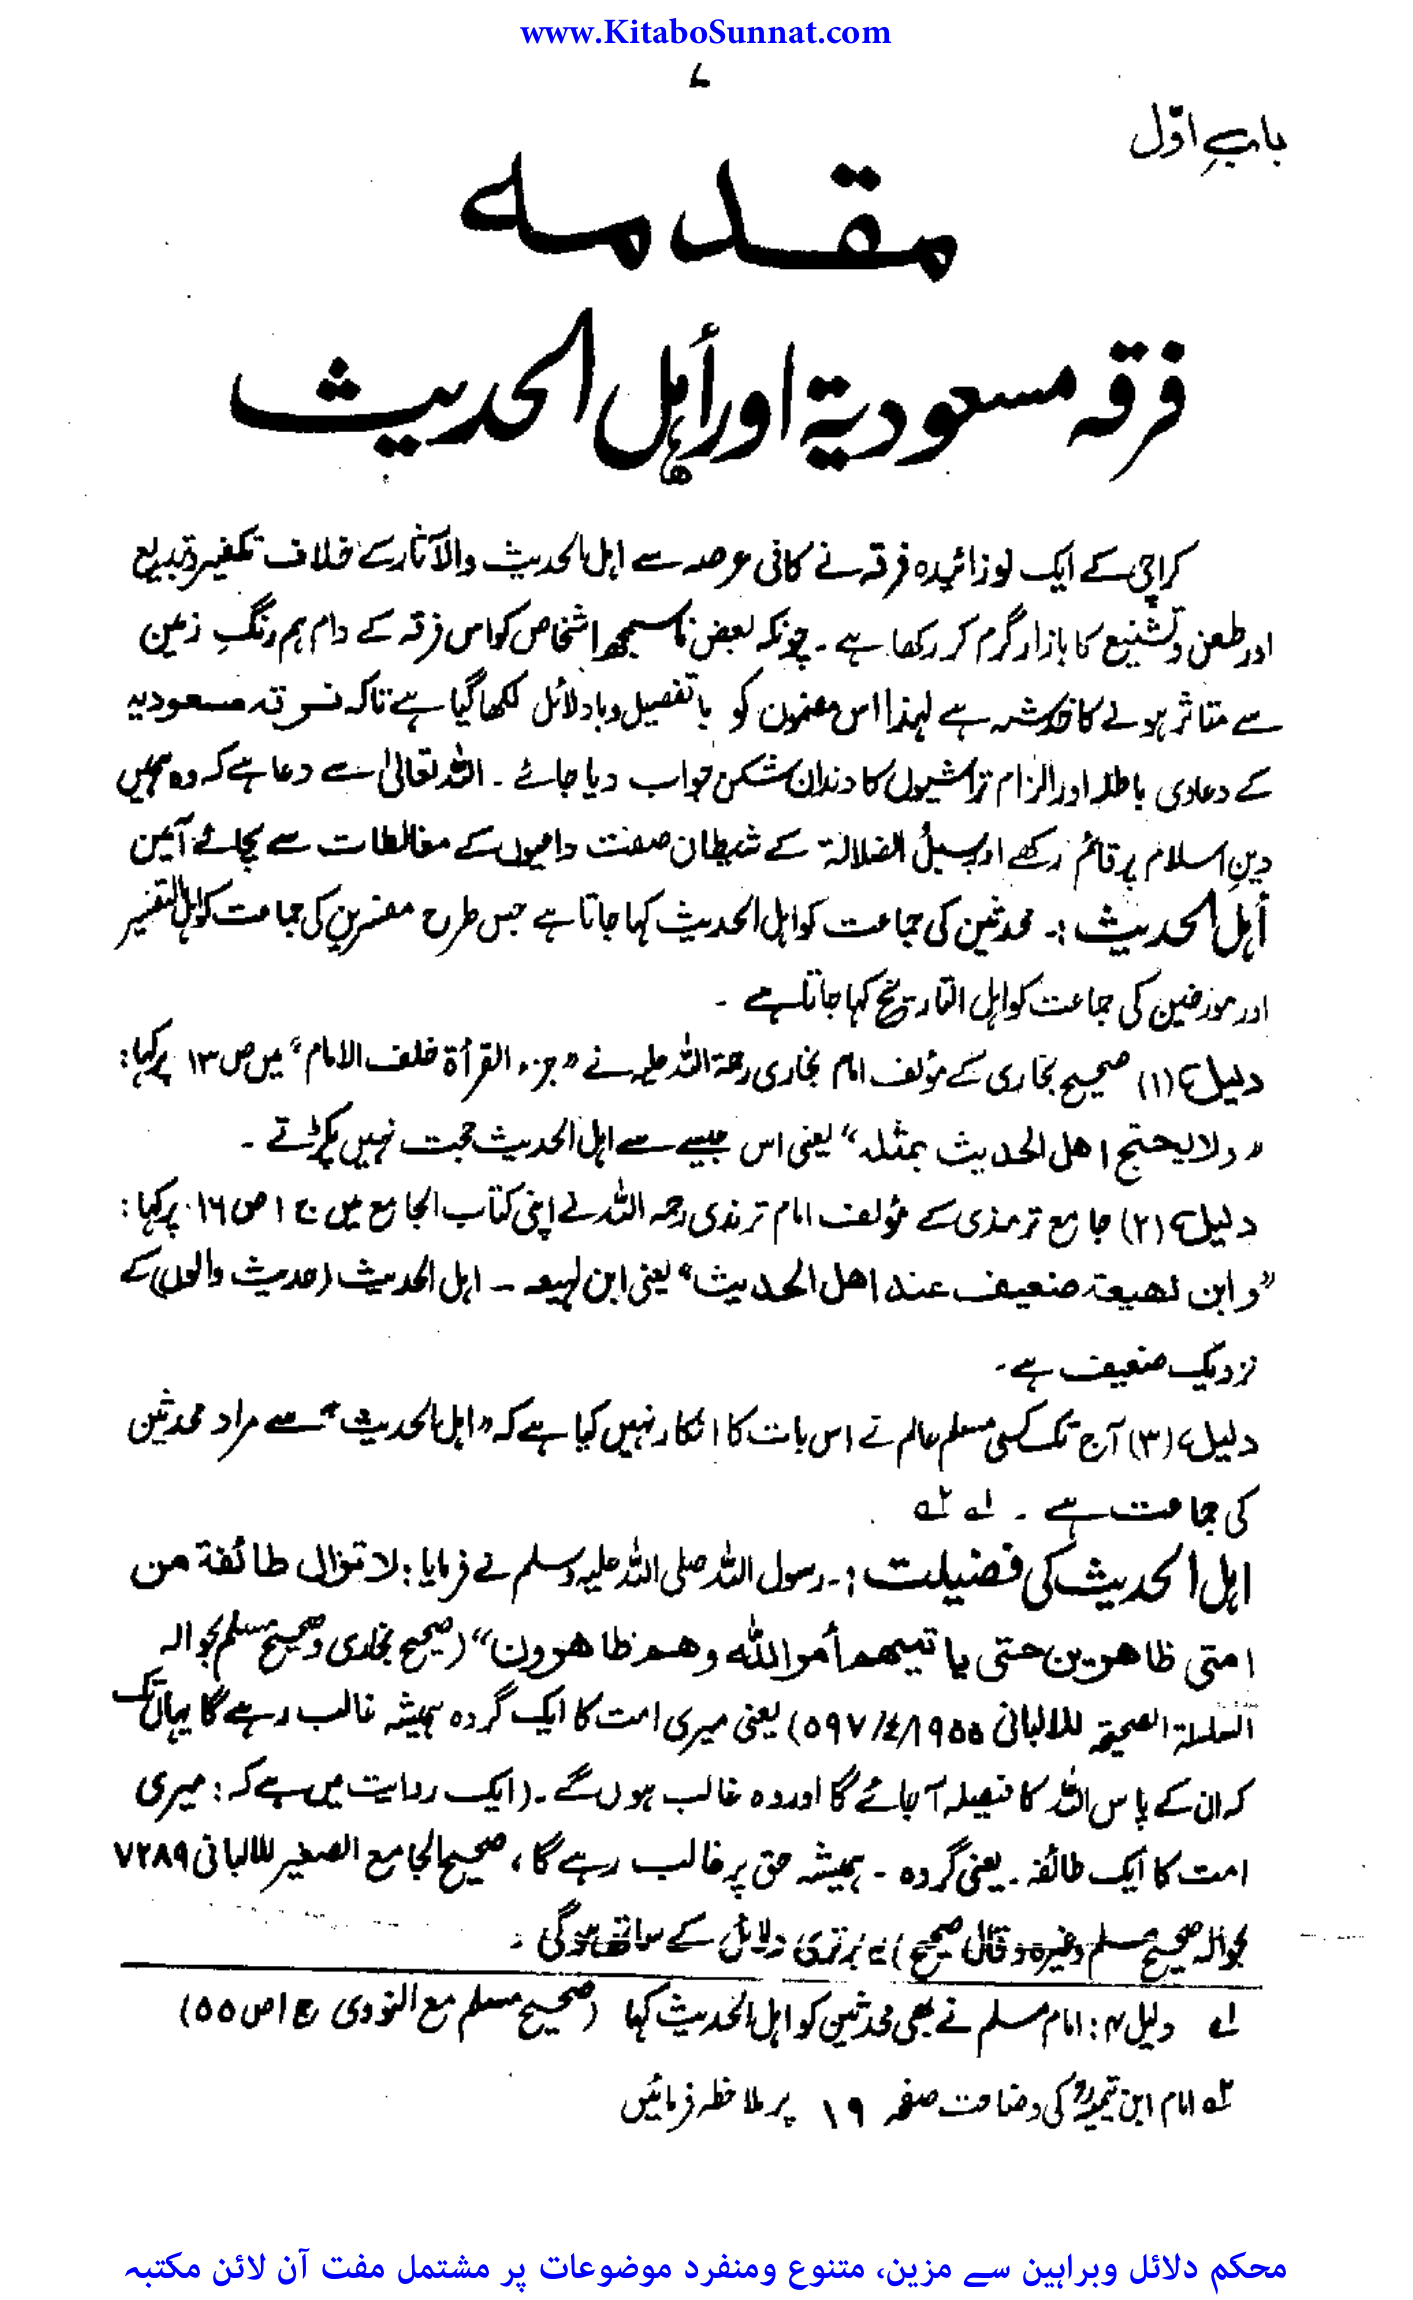 www.KitaboSunnat.com
۷
بابِ اوّل
مقدمہ
فرقہ مسعودیۃ اور أہل الحدیث
کراچی کے ایک نوزائیدہ فرقہ نے کافی عرصہ سے اہل الحدیث والآثار کے خلاف تکفیر و تبدیع
اور طعن و تشنیع کا بازار گرم کر رکھا ہے ۔ چونکہ بعض نا سمجھ اشخاص کو اس فرقہ کے دام ہم رنگِ زمین
سے متاثر ہونے کا خدشہ ہے لہذا اس مضمون کو با تفصیل و با دلائل لکھا گیا ہے تاکہ فرقہ مسعودیہ
کے دعاوی باطلہ اور الزام تراشیوں کا دندان شکن جواب دیا جائے ۔ اللہ تعالیٰ سے دعا ہے کہ وہ ہمیں
دینِ اسلام پر قائم رکھے اور سبیل الضلالۃ کے شیطان صفت داعیوں کے مغالطات سے بچائے آمین
أہل الحدیث :۔ محدثین کی جماعت کو اہل الحدیث کہا جاتا ہے جس طرح مفسرین کی جماعت کو اہل التفسیر
اور مورخین کی جماعت کو اہل التاریخ کہا جاتا ہے ۔
دلیل (۱) صحیح بخاری کے مؤلف امام بخاری رحمۃ اللہ علیہ نے "جزء القرأۃ خلف الامام" میں ص ۱۳ پر کہا :
"ولا یحتج اھل الحدیث بمثلہ" یعنی اس جیسے سے اہل الحدیث حجت نہیں پکڑتے ۔
دلیل (۲) جامع ترمذی کے مؤلف امام ترمذی رحمہ اللہ نے اپنی کتاب الجامع میں ج ۱ ص ۱۶ پر کہا :
"و ابن لھیعۃ ضعیف عند اھل الحدیث" یعنی ابن لہیعہ ۔ اہل الحدیث (حدیث والوں) کے
نزدیک ضعیف ہے ۔
دلیل (۳) آج تک کسی مسلم عالم نے اس بات کا انکار نہیں کیا ہے کہ "اہل الحدیث" سے مراد محدثین
کی جماعت ہے ۔ ۱ ۲
اہل الحدیث کی فضیلت :۔ رسول اللہ صلی اللہ علیہ وسلم نے فرمایا : لا تزال طائفۃ من
امتی ظاھرین حتی یاتیھم أمر اللہ وھم ظاھرون" (صحیح بخاری و صحیح مسلم بحوالہ
السلسلۃ الصحیحۃ للالبانی ۱۹۵۵/۴/۵۹۷) یعنی میری امت کا ایک گروہ ہمیشہ غالب رہے گا یہاں تک
کہ ان کے پاس اللہ کا فیصلہ آ جائے گا اور وہ غالب ہوں گے ۔ (ایک روایت میں ہے کہ : میری
امت کا ایک طائفہ ۔ یعنی گروہ ۔ ہمیشہ حق پر غالب رہے گا ، صحیح الجامع الصغیر للالبانی ۷۲۸۹
بحوالہ صحیح مسلم وغیرہ وقال صحیح) یہ برتری دلائل کے ساتھ ہوگی ۔
۱ دلیل ۴ : امام مسلم نے بھی محدثین کو اہل الحدیث کہا (صحیح مسلم مع النووی ج ۱ ص ۵۵)
۲ امام ابن تیمیہؒ کی وضاحت صفحہ ۱۹ پر ملاحظہ فرمائیں
محکم دلائل وبراہین سے مزین، متنوع ومنفرد موضوعات پر مشتمل مفت آن لائن مکتبہ